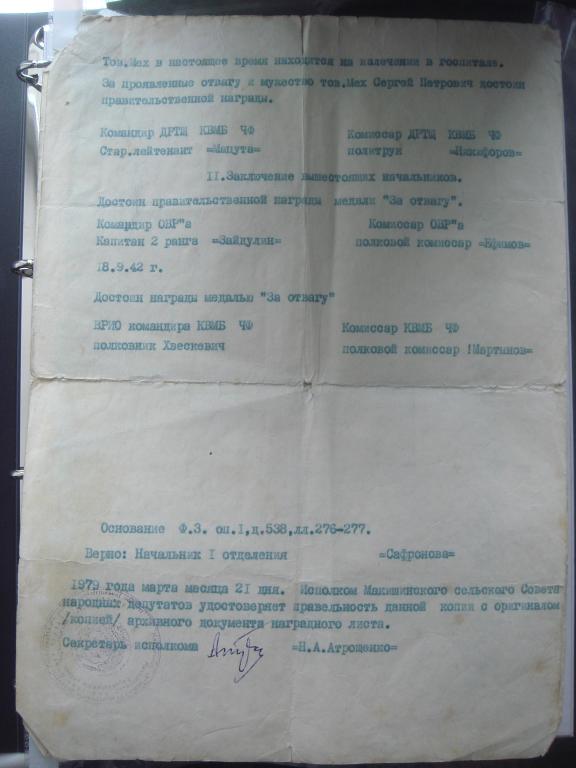 Тов.Мех в настоящее время находится на излечении в госпитале.
За проявленные отвагу и мужество тов.Мех Сергей Петрович достоин
правительственной награды.
Командир ДРТЩ КВМБ ЧФ Комиссар ДРТЩ КВМБ ЧФ
Стар.лейтенант =Мацута= политрук =Никифоров=
II.Заключение вышестоящих начальников.
Достоин правительственной награды медали "За отвагу".
Командир ОВР"а Комиссар ОВР"а
Капитан 2 ранга =Зайдулин= полковой комиссар =Ефимов=
18.9.42 г.
Достоин награды медалью "За отвагу"
ВРИО командира КВМБ ЧФ Комиссар КВМБ ЧФ
полковник Хвескевич полковой комиссар !Мартынов=
Основание Ф.3. оп.I,д.538,лл.276-277.
Верно: Начальник I отделения =Сафронова=
1979 года марта месяца 21 дня. Исполком Макишинского сельского Совета
народных депутатов удостоверяет правельность данной копии с оригиналом
/копией/ архивного документа наградного листа.
Секретарь исполкома =Н.А.Атрощенко=